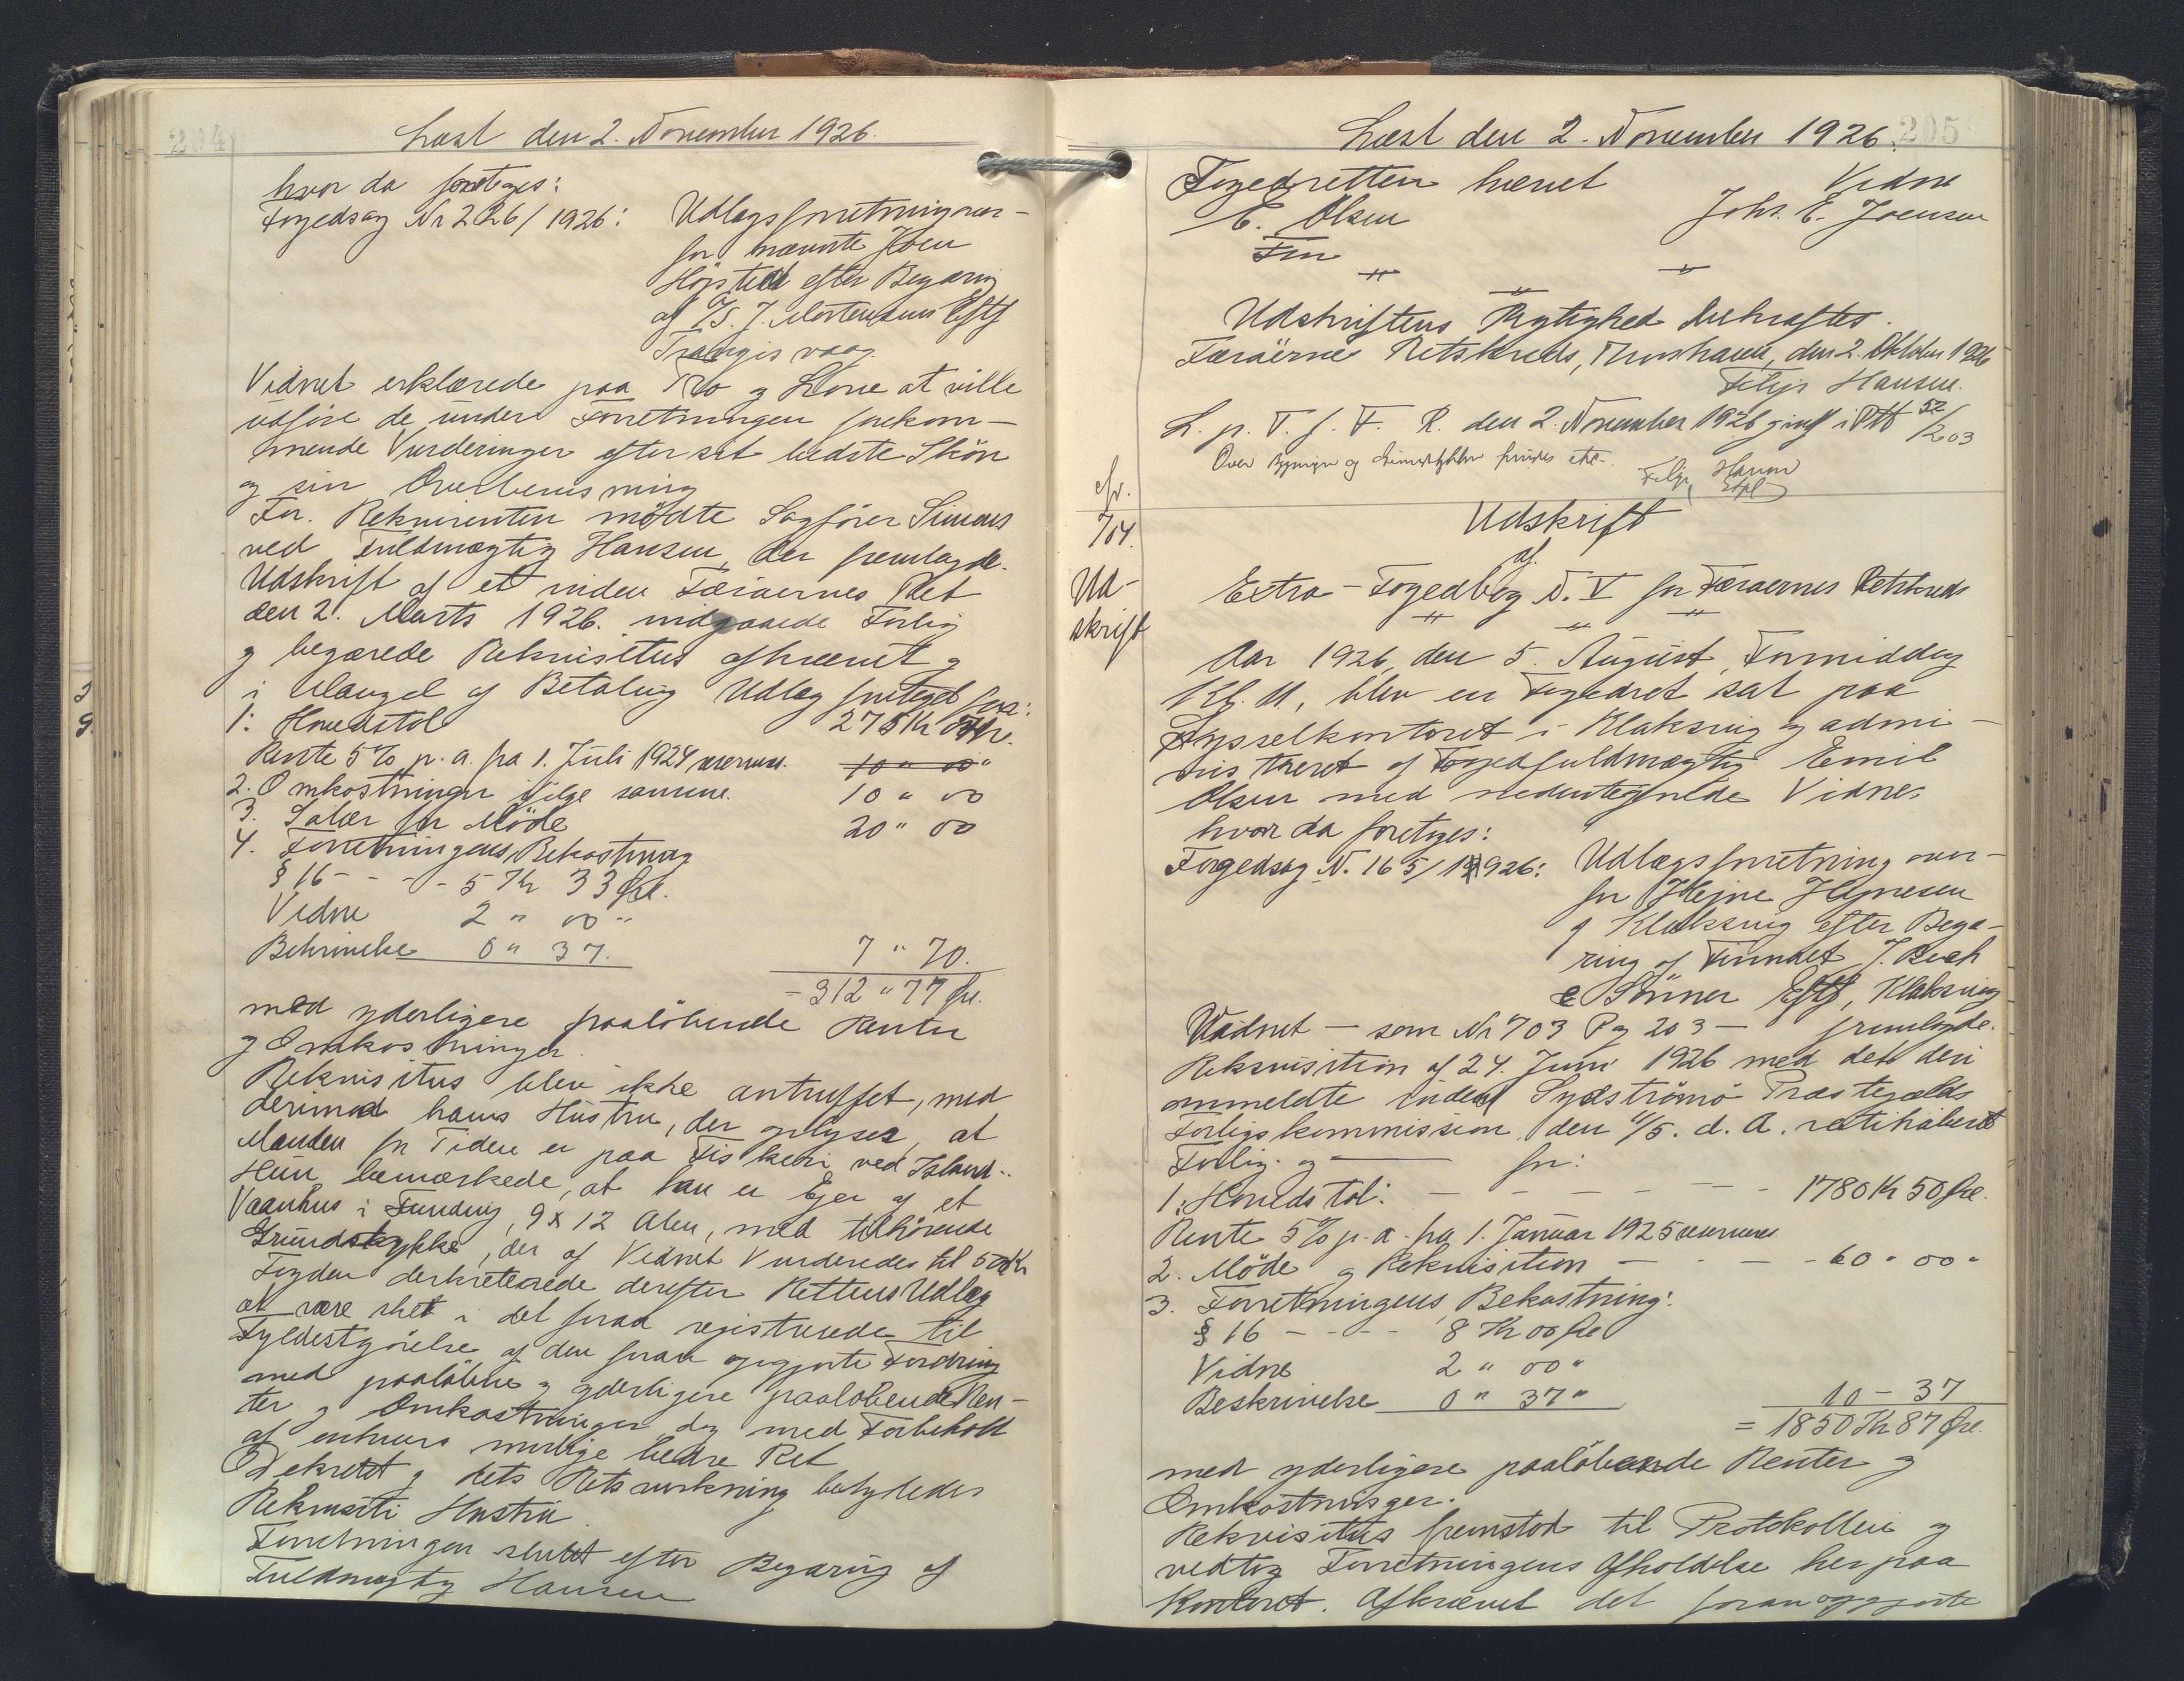 204
Læst den 2. November 1926.
hvor da foretoges:
Fogedsag Nr 226/1926: Udlægsforretning over-
for nævnte Joen
Højsted efter Begæring
af I/S. J. Mortensens Eftf
Trangisvaag.
Vidnet erklærede paa Tro og Love at ville
udføre de under Forretningen forekom-
mende Vurderinger efter sit bedste Skön
og sin Overbevisning
For Rekvirenten mödte Sagfører Simons
ved Fuldmægtig Hansen, der fremlagde
Udskrift af et inden Færøernes Ret
den 2. Marts 1926. indgaaede Forlig
og begærede Rekvisitus afkrævet og
i Mangel af Betaling Udlæg foretaget for:
1: Hovedstol 275 Kr Øre.
Rente 5% p. a. fra 1. Juli 1924
2. Omkostninger ifølge samme. 10 " 00
3. Salær for Möde 20 " 00
4. Forretningens Bekostning
§ 16 - - - - 5 Kr 33 Øre.
Vidne 2 " 00 "
Beskrivelse 0 " 37.
7 " 70.
- 312 " 77 Øre.
med yderligere paalöbende Renter
og Omkostninger.
Rekvisitus blev ikke antruffet, med
derimod hans Hustru, der oplyser, at
Manden for Tiden er paa Fiskeri ved Island.
Hun bemærkede, at han er Ejer af et
Vaanhus i Funding, 9 x 12 Alen, med tilhörende
Grundstykke, der af Vidnet Vurderedes til 500 Kr
Fogden derkreterede derefter Rettens Udlæg
at være sket i det foran registrerede til
Fyldestgörelse af den foran opgjorte Fordring
med paalöbne og yderligere paalöbende Ren-
ter og Omkostninger dog med Forbehold
af enhvers mulige bedre Ret
Dekretet og dets Retsvirkning betydedes
Rekvisiti Hustru.
Forretningen sluttet efter Begæring af
Fuldmægtig Hansen
205
Læst den 2. November 1926.
Fogedretten hævet Vidne
E. Olsen Johs. E. Joensen
Fm
" " "
Udskriftens Rigtighed bekræftes.
Færøernes Retskreds, Thorshavn, den 2. Oktober 1926
Filip Hansen.
L. p. T. f. F. R. den 2. November 1926 ginf i Ptk 52/203
Over Bygningen og findes
Filip Hansen
cfr.
704.
Ud-
skrift
Udskrift
af
Extra-Fogedbog N. V for Færøernes Retskreds
" " "
Aar 1926, den 5. August, Formiddag
Kl. 11, blev en Fogedret sat paa
Sysselkontoret i Klaksvig og admi-
nistreret af Fogedfuldmægtig Emil
Olsen med nedentegnede Vidne,
hvor da foretoges:
Fogedsag N. 165/1926: Udlægsforretning over-
for Hejne Hejnesen
af Klaksvig efter Begæ-
ring af Firmaet J. Bech
& Sönner Eftf, Klaksvig
Vidnet - som Nr 703 Pag 203 - fremlagde
Rekvisition af 24. Juni 1926 med det deri
ommeldte inden Sydströmö Præstegælds
Forligskommission den 11/5. d. A. ratihaberet
Forlig og ——— for:
1. Hovedstol: - - - - - - 1780 Kr 50 Øre.
Rente 5% p. a. fra 1. Januar 1925
2. Möde og Rekvisition - - - - 60 " 00 "
3. Forretningens Bekostning:
§ 16 - - - - 8 Kr 00 Øre
Vidne 2 " 00 "
Beskrivelse 0 " 37 "
10 - 37
= 1850 Kr 87 Øre.
med yderligere paalöbende Renter og
Omkostninger.
Rekvisitus fremstod til Protokollen og
vedtog Forretningens Afholdelse her paa
Kontoret. Afkrævet det foran opgjorte